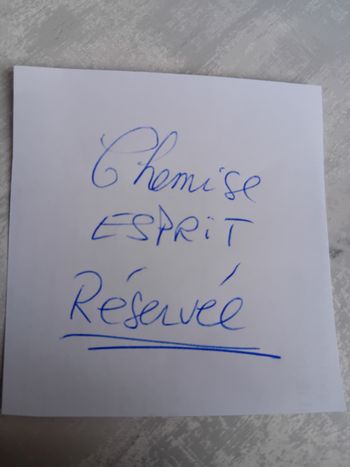 Chemise
ESPRiT
Réservée